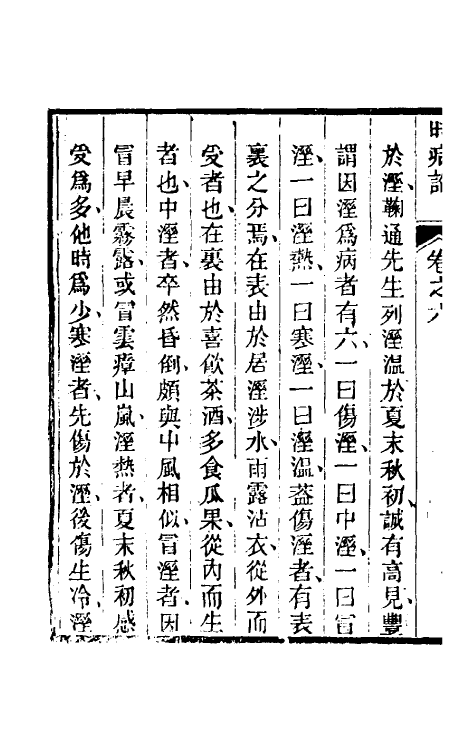 時病論
卷之六
於溼、鞠通先生列溼溫於夏末秋初、誠有高見、豐
謂因溼爲病者有六、一曰傷溼、一曰中溼、一曰冒
溼、一曰溼熱、一曰寒溼、一曰溼溫、蓋傷溼者、有表
裏之分焉、在表由於居溼涉水、雨露沾衣、從外而
受者也、在裏由於喜飲茶酒、多食瓜果、從內而生
者也、中溼者、卒然昏倒、頗與中風相似、冒溼者、因
冒早晨霧露、或冒雲瘴山嵐、溼熱者、夏末秋初感
受爲多、他時爲少、寒溼者、先傷於溼、後傷生冷、溼